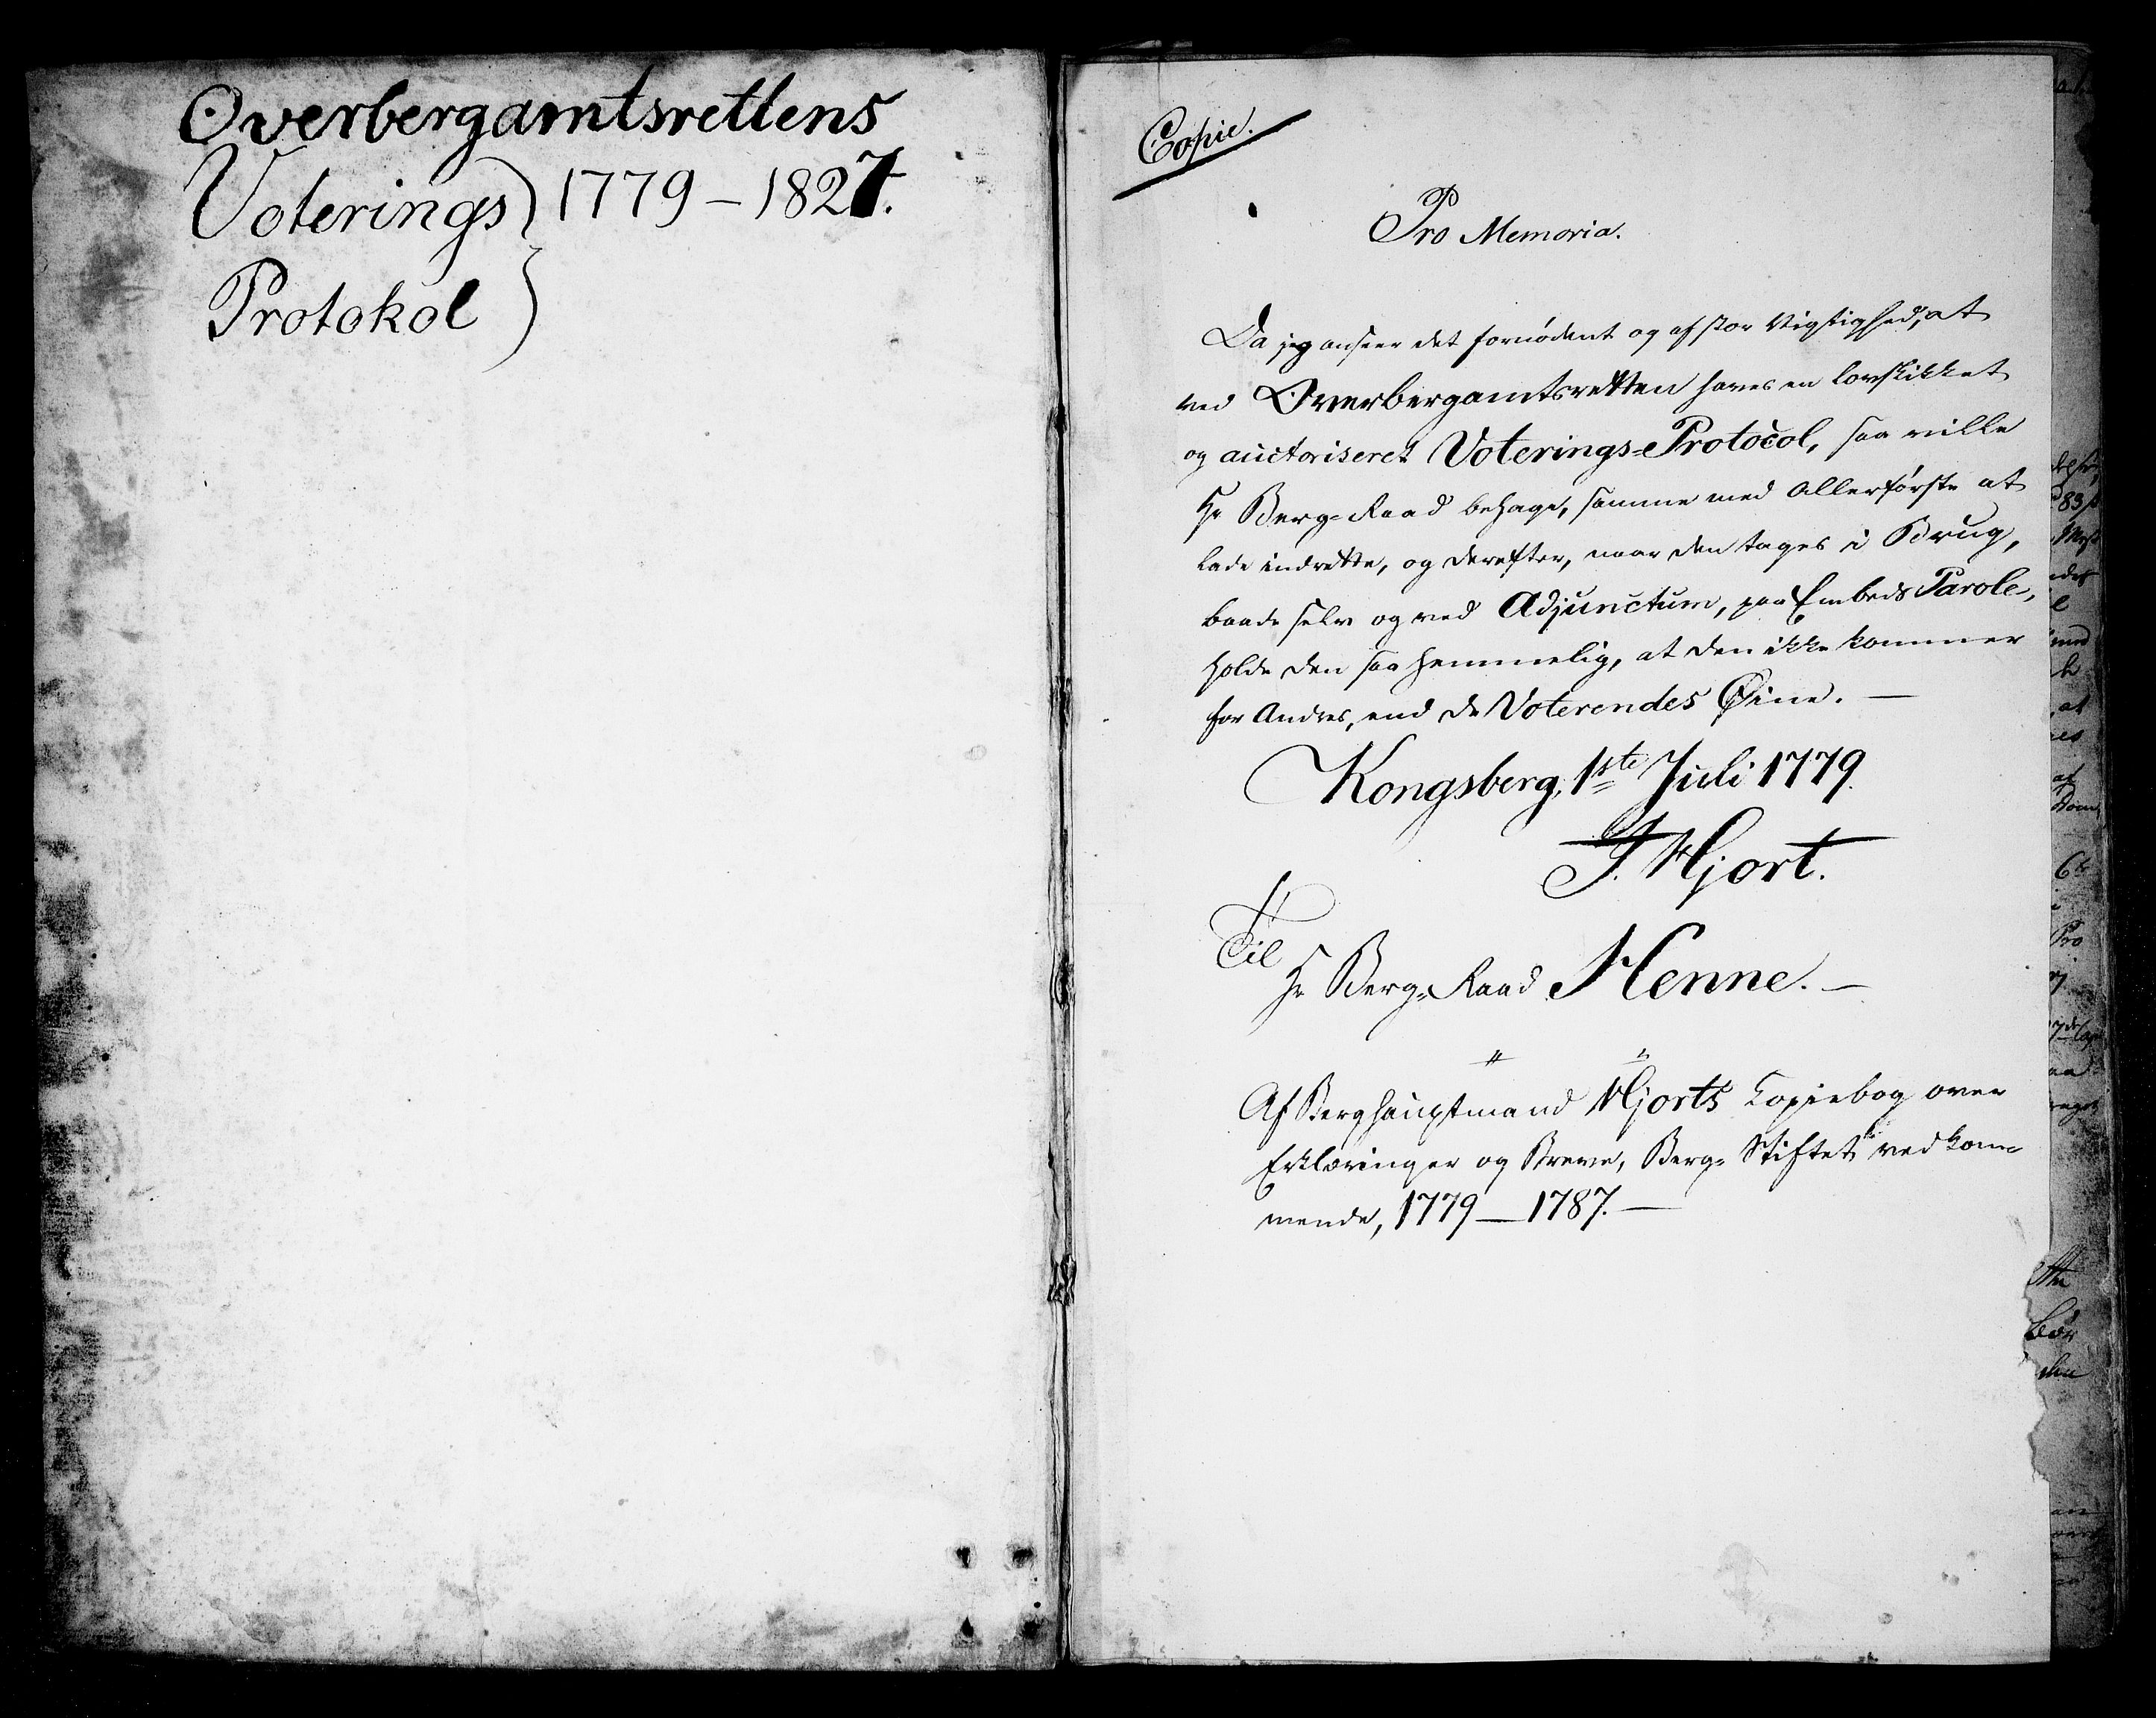 Overbergamtsrettens
Voterings } 1779 – 1827.
Protokol }
Copie.
Pro Memoria.
Da jeg anseer det fornødent og af stor Vigtighed, at
ved Overbergamtsretten haves en lovskikket
og auctoriseret Voterings=Protocol, saa ville
Hr Berg=Raad behage, samme med allerførste at
lade indrette, og derefter, naar den tages i Brug,
baade selv og ved Adjunctum, paa Embeds Parole,
holde den saa hemmelig, at den ikke kommer
for Andres, end de Voterendes Øine. —
Kongsberg, 1ste Juli 1779.
J. Hjort.
Til
Hr Berg=Raad Henne. —
Af Berghauptmand Hjorts Copiebog over
Erklæringer og Breve, Berg=Stiftet vedkom=
mende, 1779 — 1787. —